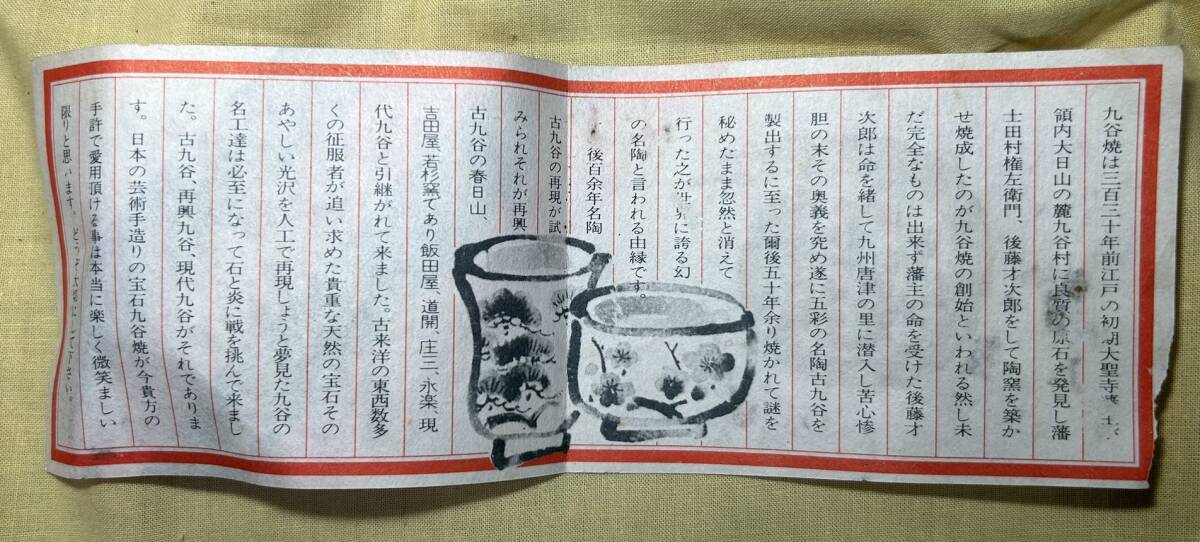 九谷焼は三百三十年前江戸の初期大聖寺
領内大日山の麓九谷村に良質の原石を発見し藩
士田村権左衛門、後藤才次郎をして陶窯を築か
せ焼成したのが九谷焼の創始といわれる然し未
だ完全なものは出来ず藩主の命を受けた後藤才
次郎は命を緒して九州唐津の里に潜入し苦心惨
胆の末その奥義を究め遂に五彩の名陶古九谷を
製出するに至った爾後五十年余り焼かれて謎を
秘めたまま忽然と消えて
行った之が世界に誇る幻
の名陶と言われる由縁です。
後百余年名陶
古九谷の再現が試
みられそれが再興
古九谷の春日山、
吉田屋、若杉窯であり飯田屋、道開、庄三、永楽、現
代九谷と引継がれて来ました。古来洋の東西数多
くの征服者が追い求めた貴重な天然の宝石その
あやしい光沢を人工で再現しようと夢見た九谷の
名工達は必至になって石と炎に戦を挑んで来まし
た。古九谷、再興九谷、現代九谷がそれでありま
す。日本の芸術手造りの宝石九谷焼が今貴方の
手許で愛用頂ける事は本当に楽しく微笑ましい
限りと思います。どうぞ大切にして下さい。